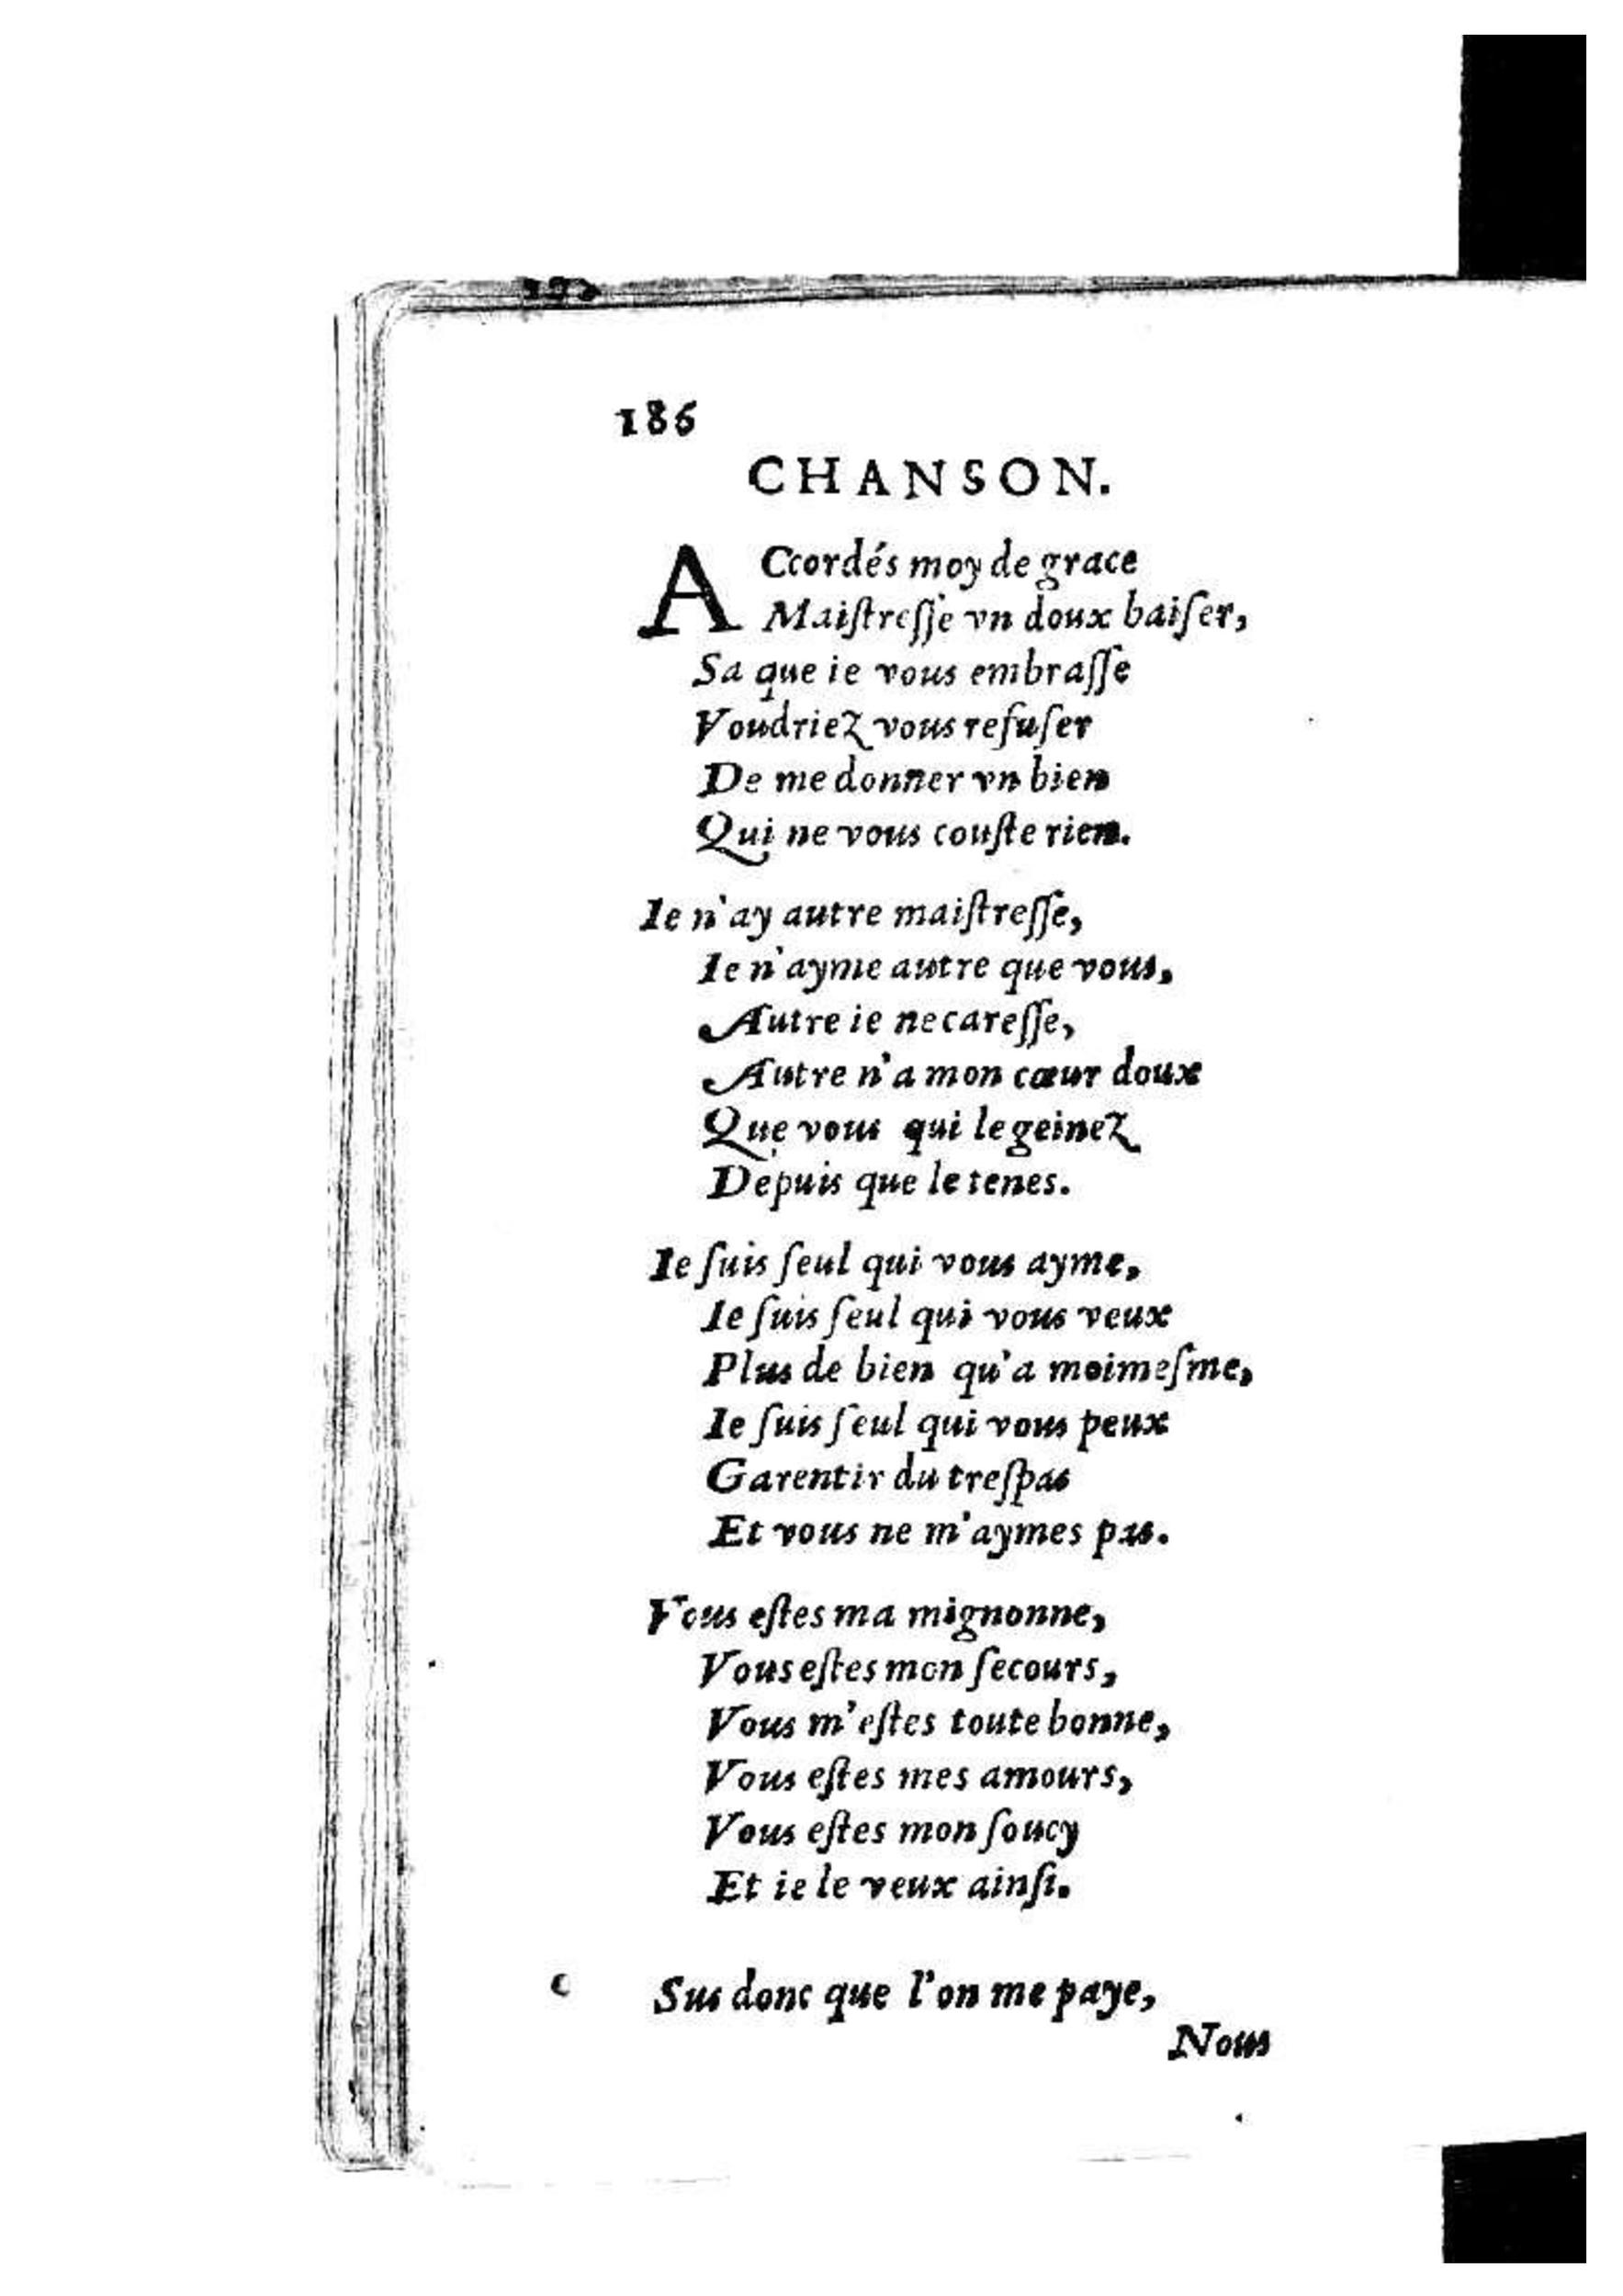 186
CHANSON.
ACcordés moy de grace
Maiſtreſſe vn doux baiſer,
Sa que ie vous embraſſe
Voudriez vous refuſer
De me donner vn bien
Qui ne vous couſte rien.
Ie n'ay autre maiſtreſſe,
Ie n'ayme autre que vous,
Autre ie ne careſſe,
Autre n'a mon cœur doux
Que vous qui le geinez
Depuis que le tenes.
Ie ſuis ſeul qui vous ayme,
Ie ſuis ſeul qui vous veux
Plus de bien qu'a moimeſme,
Ie ſuis ſeul qui vous peux
Garentir du treſpas
Et vous ne m'aymes pas.
Vous eſtes ma mignonne,
Vous eſtes mon ſecours,
Vous m'eſtes toute bonne,
Vous eſtes mes amours,
Vous eſtes mon ſoucy
Et ie le veux ainſi.
Sus donc que l'on me paye,
Nous